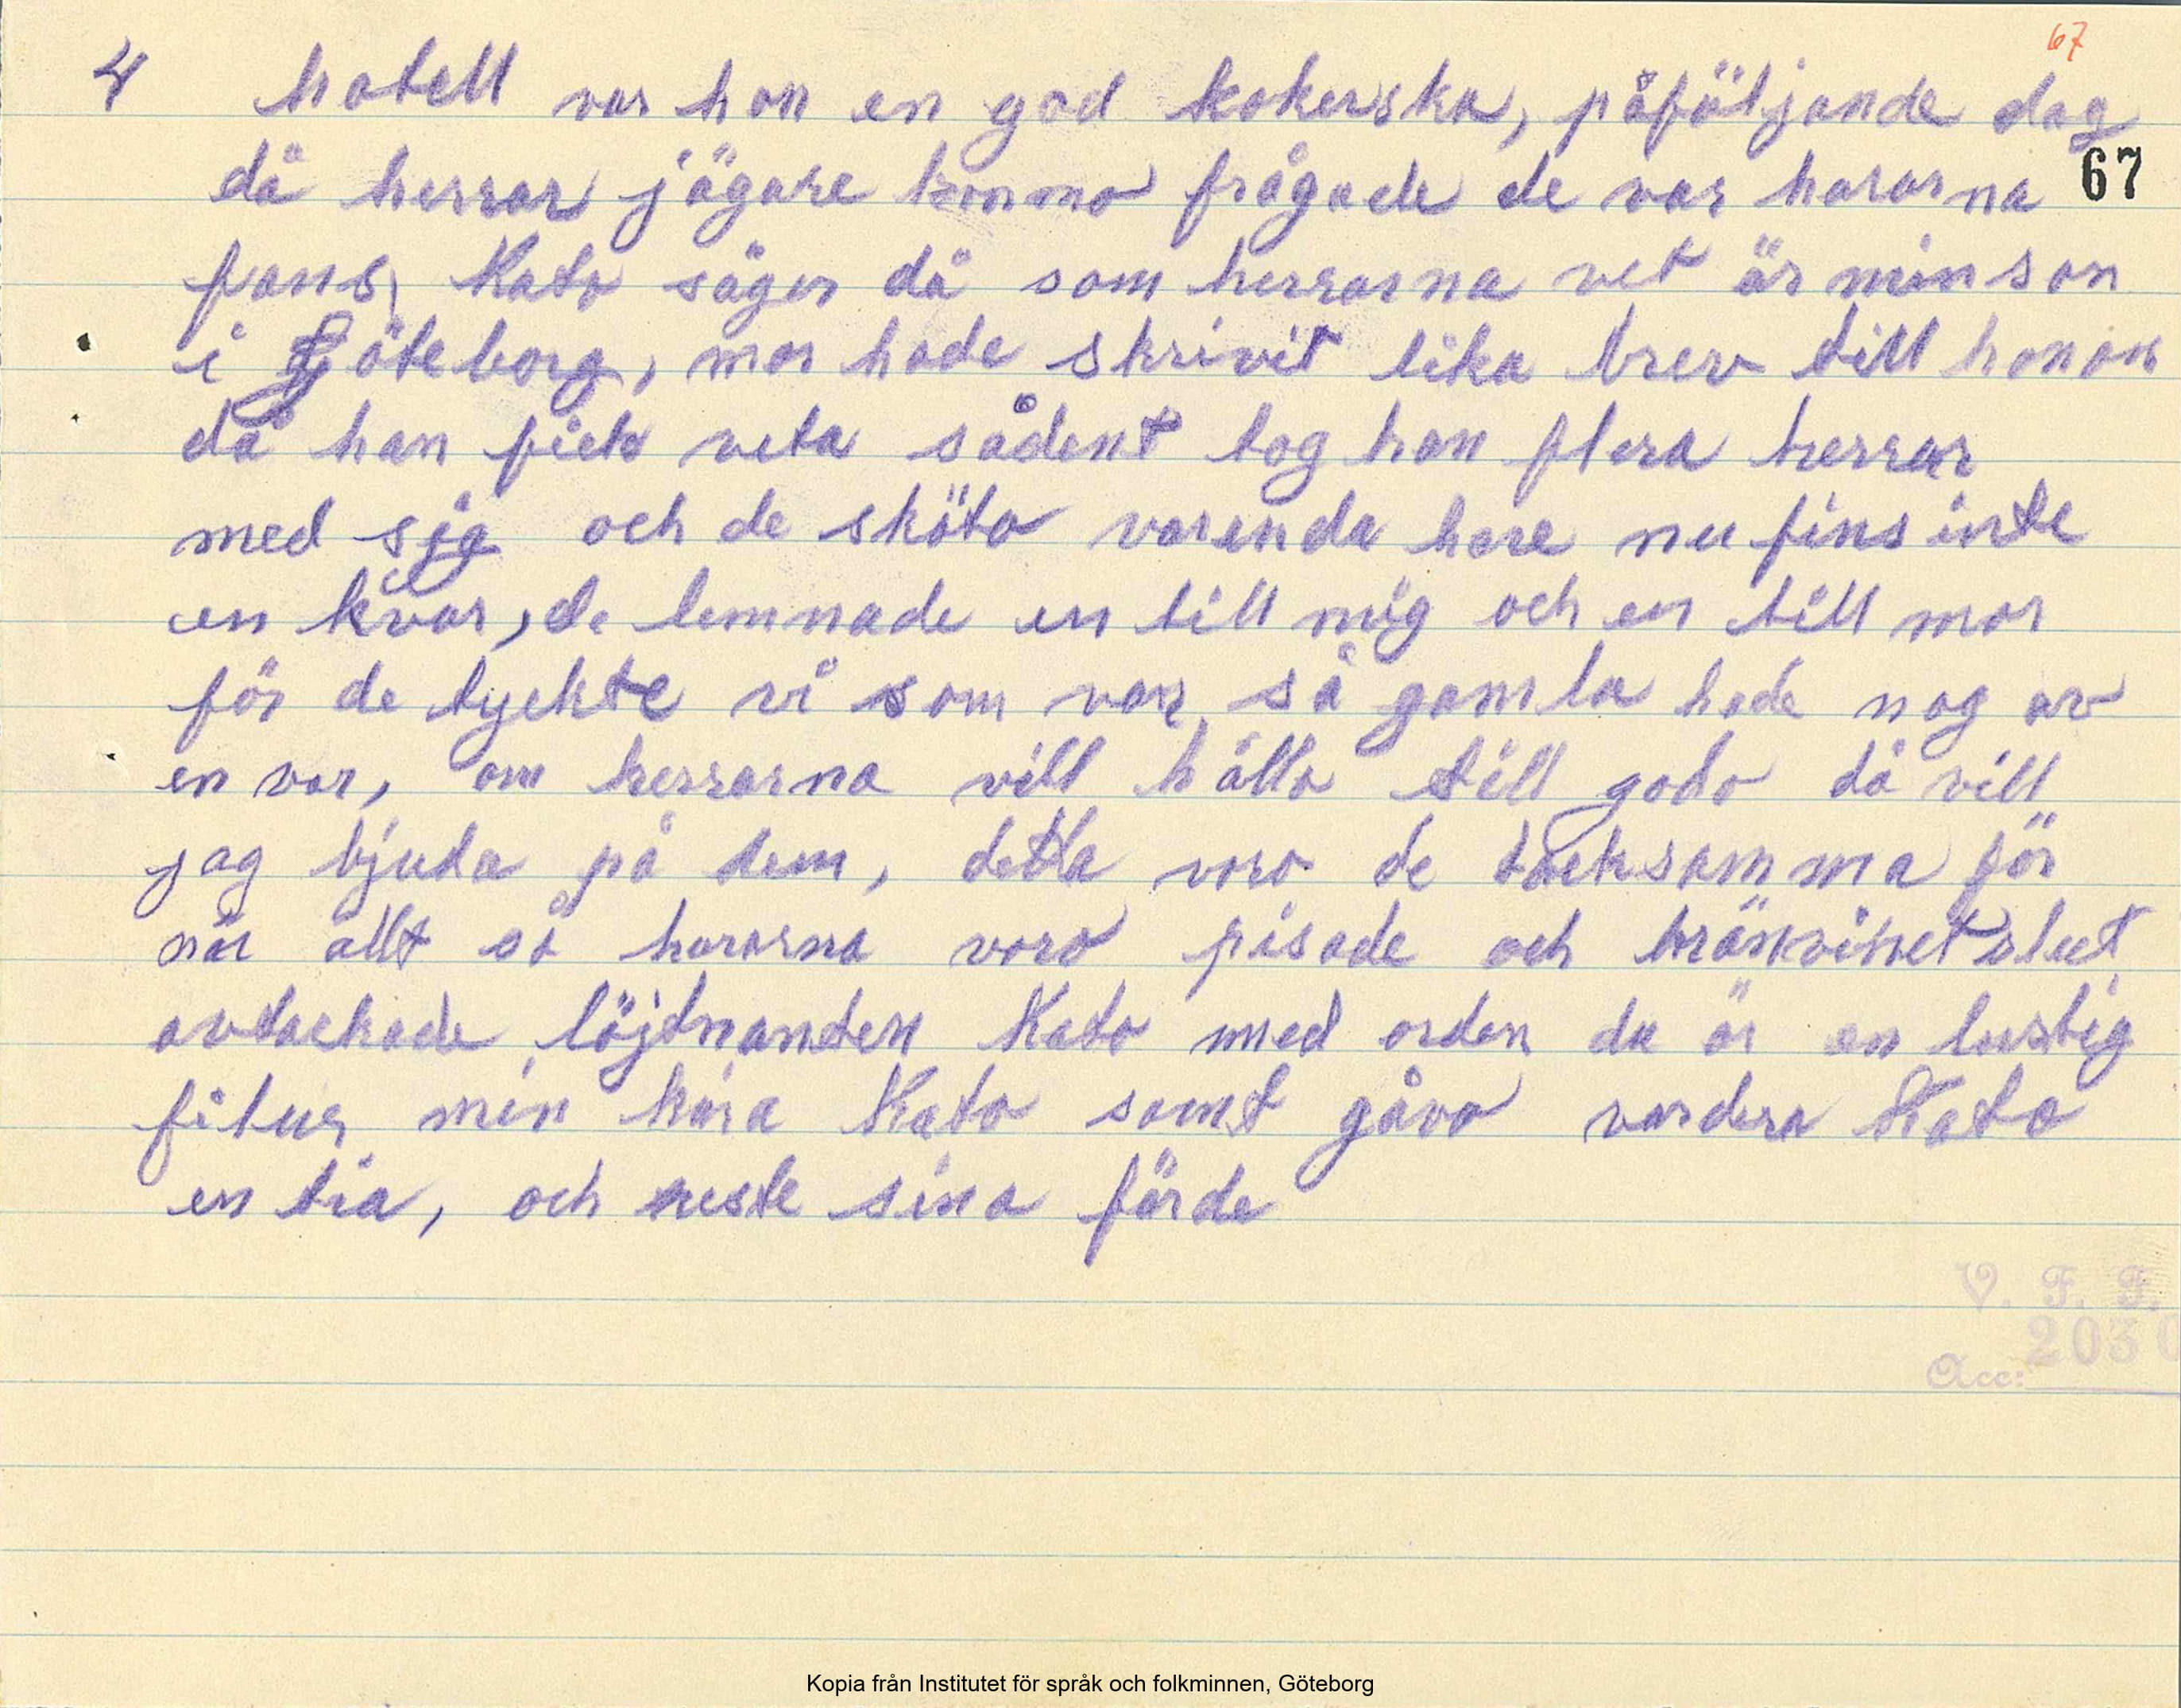 67
4 hotell var hon en god kokerska, påföljande dag
då herrar jägare kommo frågade de var hararna 67
fans, Kato säger då som herrarna vet är min son
i Göteborg, mor hade skrivit lika brev till honom
då han fick veta sådent tog han flera herrar
med sig och de sköto varenda hare nu fins inte
en kvar, de lemnade en till mig och en till mor
för de tyckte vi som var så gamla hade nog av
en var, om herrarna vill hålla till godo då vill
jag bjuda på dem, detta voro de tacksamma för
när allt så hararna voro pisade och bränvinet slut
avtackade löjtnanten Kato med orden du är en lustig
filur min kära Kato samt gåvo vardera Kato
en tia, och reste sina färde
V. F. F.
2030
Acc:
Kopia från Institutet för språk och folkminnen, Göteborg